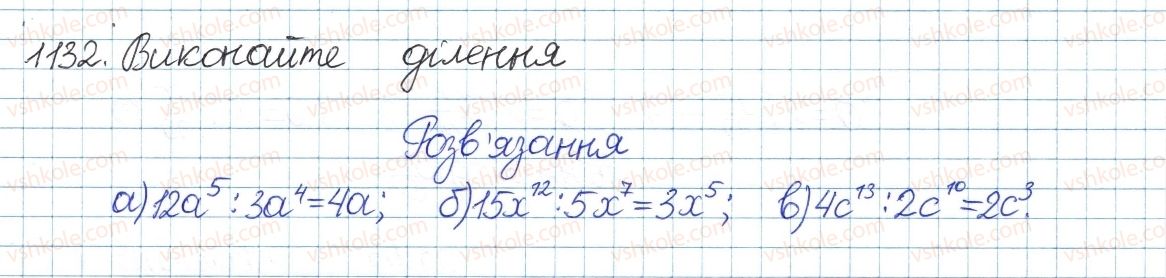 1132. Виконайте ділення
Розв'язання
а) 12a⁵ : 3a⁴ = 4a; б) 15x¹² : 5x⁷ = 3x⁵; в) 4c¹³ : 2c¹⁰ = 2c³.